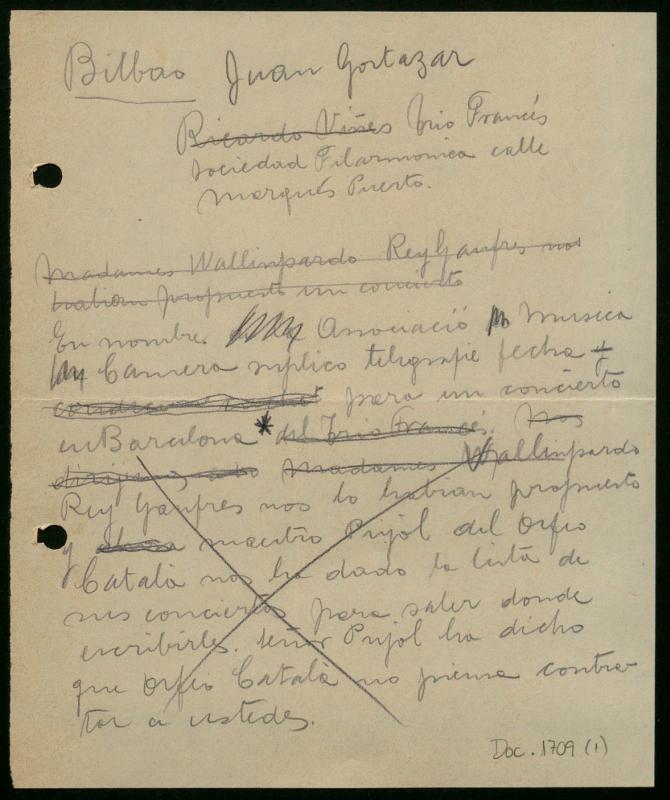 Bilbao Juan Gortazar
Ricardo Viñes Trio Francés
Sociedad Filarmonica calle
Marqués Puerto.
Madames Wallinpardo Rey Gaufres nos
habian propuesto un concierto
En nombre Associació Musica
Camera suplico telegrafie fecha +
para un concierto
en Barcelona * del Trio Francés. Nos
dirijimos Madames Wallinpardo
Rey Gaufres nos lo habian propuesto
y ahora maestro Pujol del Orfeo
Català nos ha dado la lista de
sus conciertos para saber donde
escribirles. Señor Pujol ha dicho
que Orfeo Català no piensa contra-
tar a ustedes.
Doc. 1709 (1)